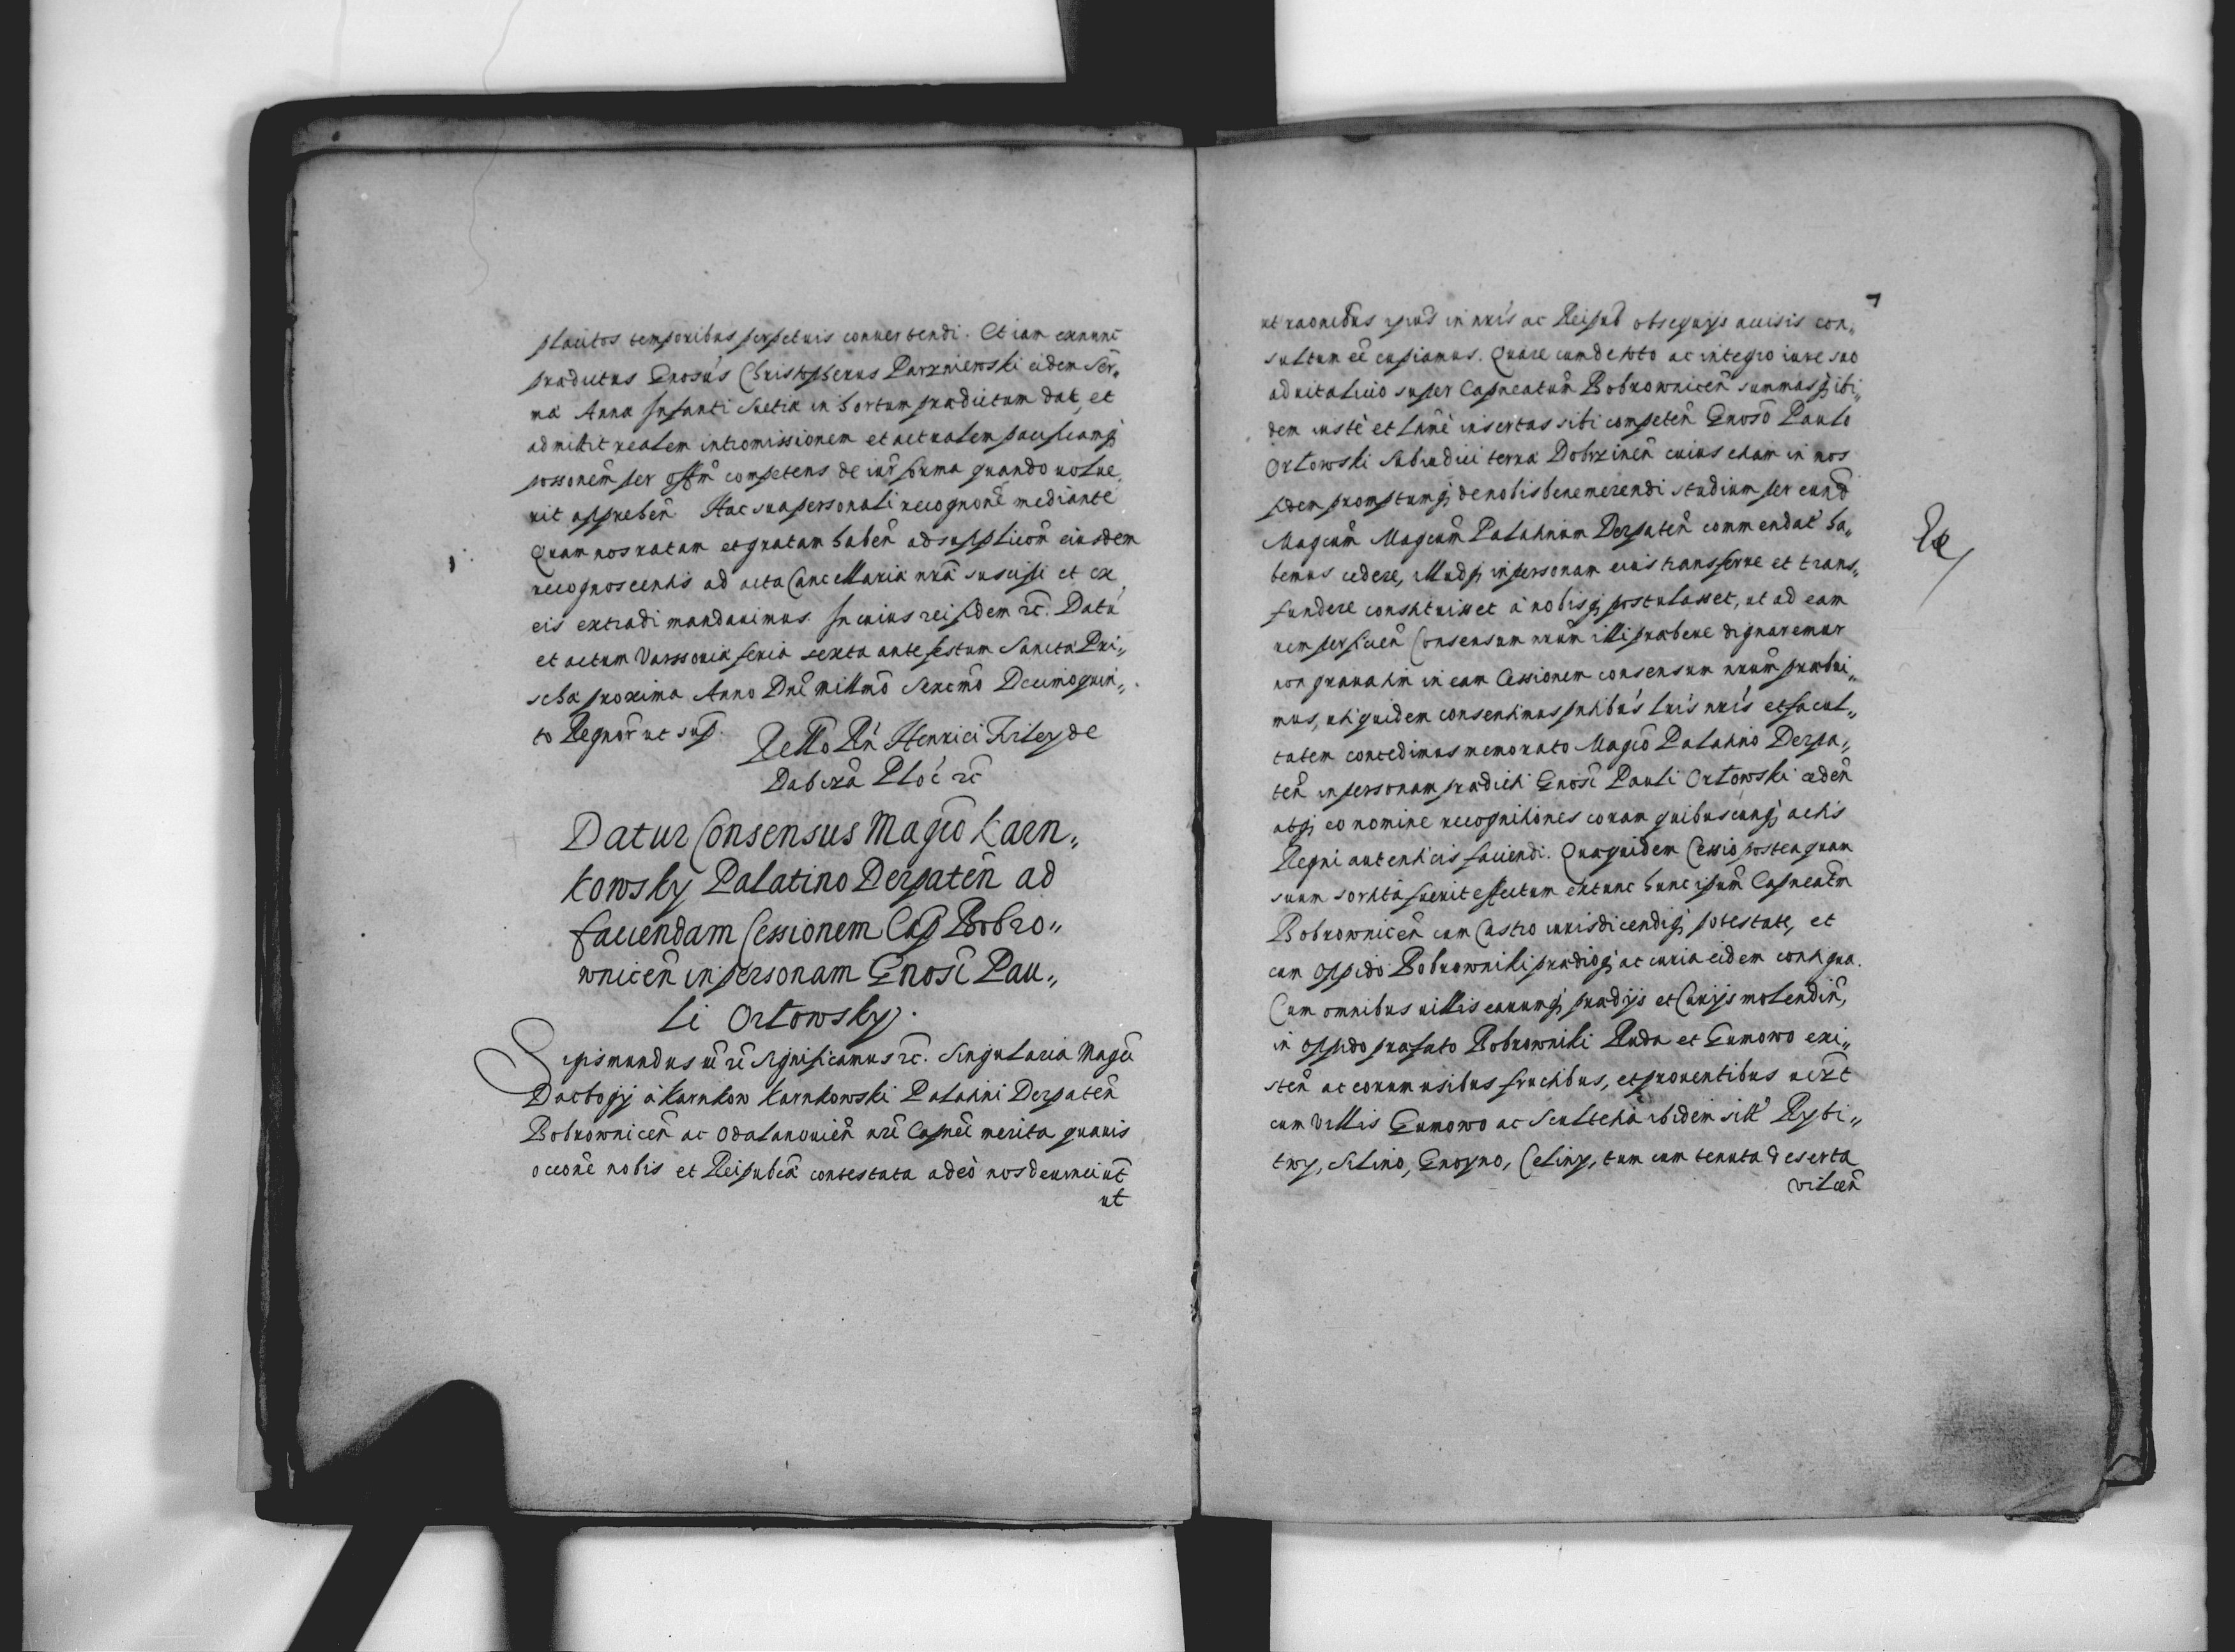 placitos temporibus perpetuis conuertendi. Et iam exnunc
prædictus Gnosús Christopherus Parzniewski eidem Ser„
mæ Annæ Infanti Suetiæ in hortum prædictum dat, et
admittit realem intromissionem et actualem pacificamq́
possonēm per offm̄ competens de iur̄ forma quando volue„
rit appreheñ. Hac sua personali recognonē mediante
Quam nos ratam et gratam habeñ ad supplicoñ eiusdem
recognoscentis ad acta Cancellariæ nræ̃ suscipi et ex
eis extradi mandauimus. In cuius rei fidem rc̄. Datū
et actum Varssouiæ feria sexta ante festum Sanctæ Pri„
schæ proxima Anno Dnī Millmō Sexcmō Decimoquin„
to Regnor̄ ut sup̄.
Rello Rń Henrici Firley de
Dabrowicæ Ploć rc̄
Datur Consensus Magco Karn„
kowsky Palatino Derpateñ ad
faciendam Cessionem Cap̄ Bobro„
wniceñ in personam Gnosī Pau„
li Orłowsky.
Sigismundus rc̄ rc̄ Significamus rc̄. Singularia Magci
Dactogij à Karnkow Karnkowski Palatini Derpateñ
Bobrowniceñ ac Odalanouieñ nrī Capnei merita quauis
occonē nobis et Reipubcæ contestata adeò nos deuinciūt
ut
7
ut raonibus ipsiús in nrīs ac Reipub obsequijs accisis con„
sultum eē cupiamus. Quare cum de toto ac integro iure suo
aduitalitio super Capneatum̃ Bobrowniceñ summasq́ ibi„
dem iustè et latitè insertas sibi competeñ Gnosō Paulo
Orłowski Subiudici terræ Dobrzineñ cuius etiam in nos
fidem promptumq́ de nobis bene merendi studium per eund̄
Magcum̃ Magcum̃ Palatinum Derpateñ commendat̄ ha„
bemus cedere, illudq́ in personam eius transferre et trans„
fundere constituisset à nobisq́ postulasset, ut ad eam
rem perficieñ Consensum nrum̃ illi præbere dignaremur
non grauatim in eam Cessionem consensum nrum̃ præbui„
mus, uti quidem consentimus pntibūs lrīs nrīs et facul„
tatem concedimus memorato Magcō Palatino Derpa„
teñ in personam prædicti Gnosī Pauli Orłowski cedeñ
atq́ eo nomine recognitiones coram quibuscunq́ actis
Regni autenticis faciendi. Quæquidem Cessio posteaquam
suum sortita fuerit effectum extunc hunc ipsum̃ Capneatm̄
Bobrowniceñ cum Castro iurisdicendiq́ potestate, et
cum Oppido Bobrowniki prædioq́ ac curia eidem contigua.
Cum omnibus villis earumq́ prædijs et Curijs molendiñ,
in Oppido præfato Bobrowniki Ruda et Gumowo exi„
steñ ac eorum usibus fructibus, et prouentibus
cum Villis Gumowo ac Scultetia ibidem sitt̄ Rybi„
twy, Silino, Gnoyno, Celiny, tum cum tenuta deserta
vilceñ